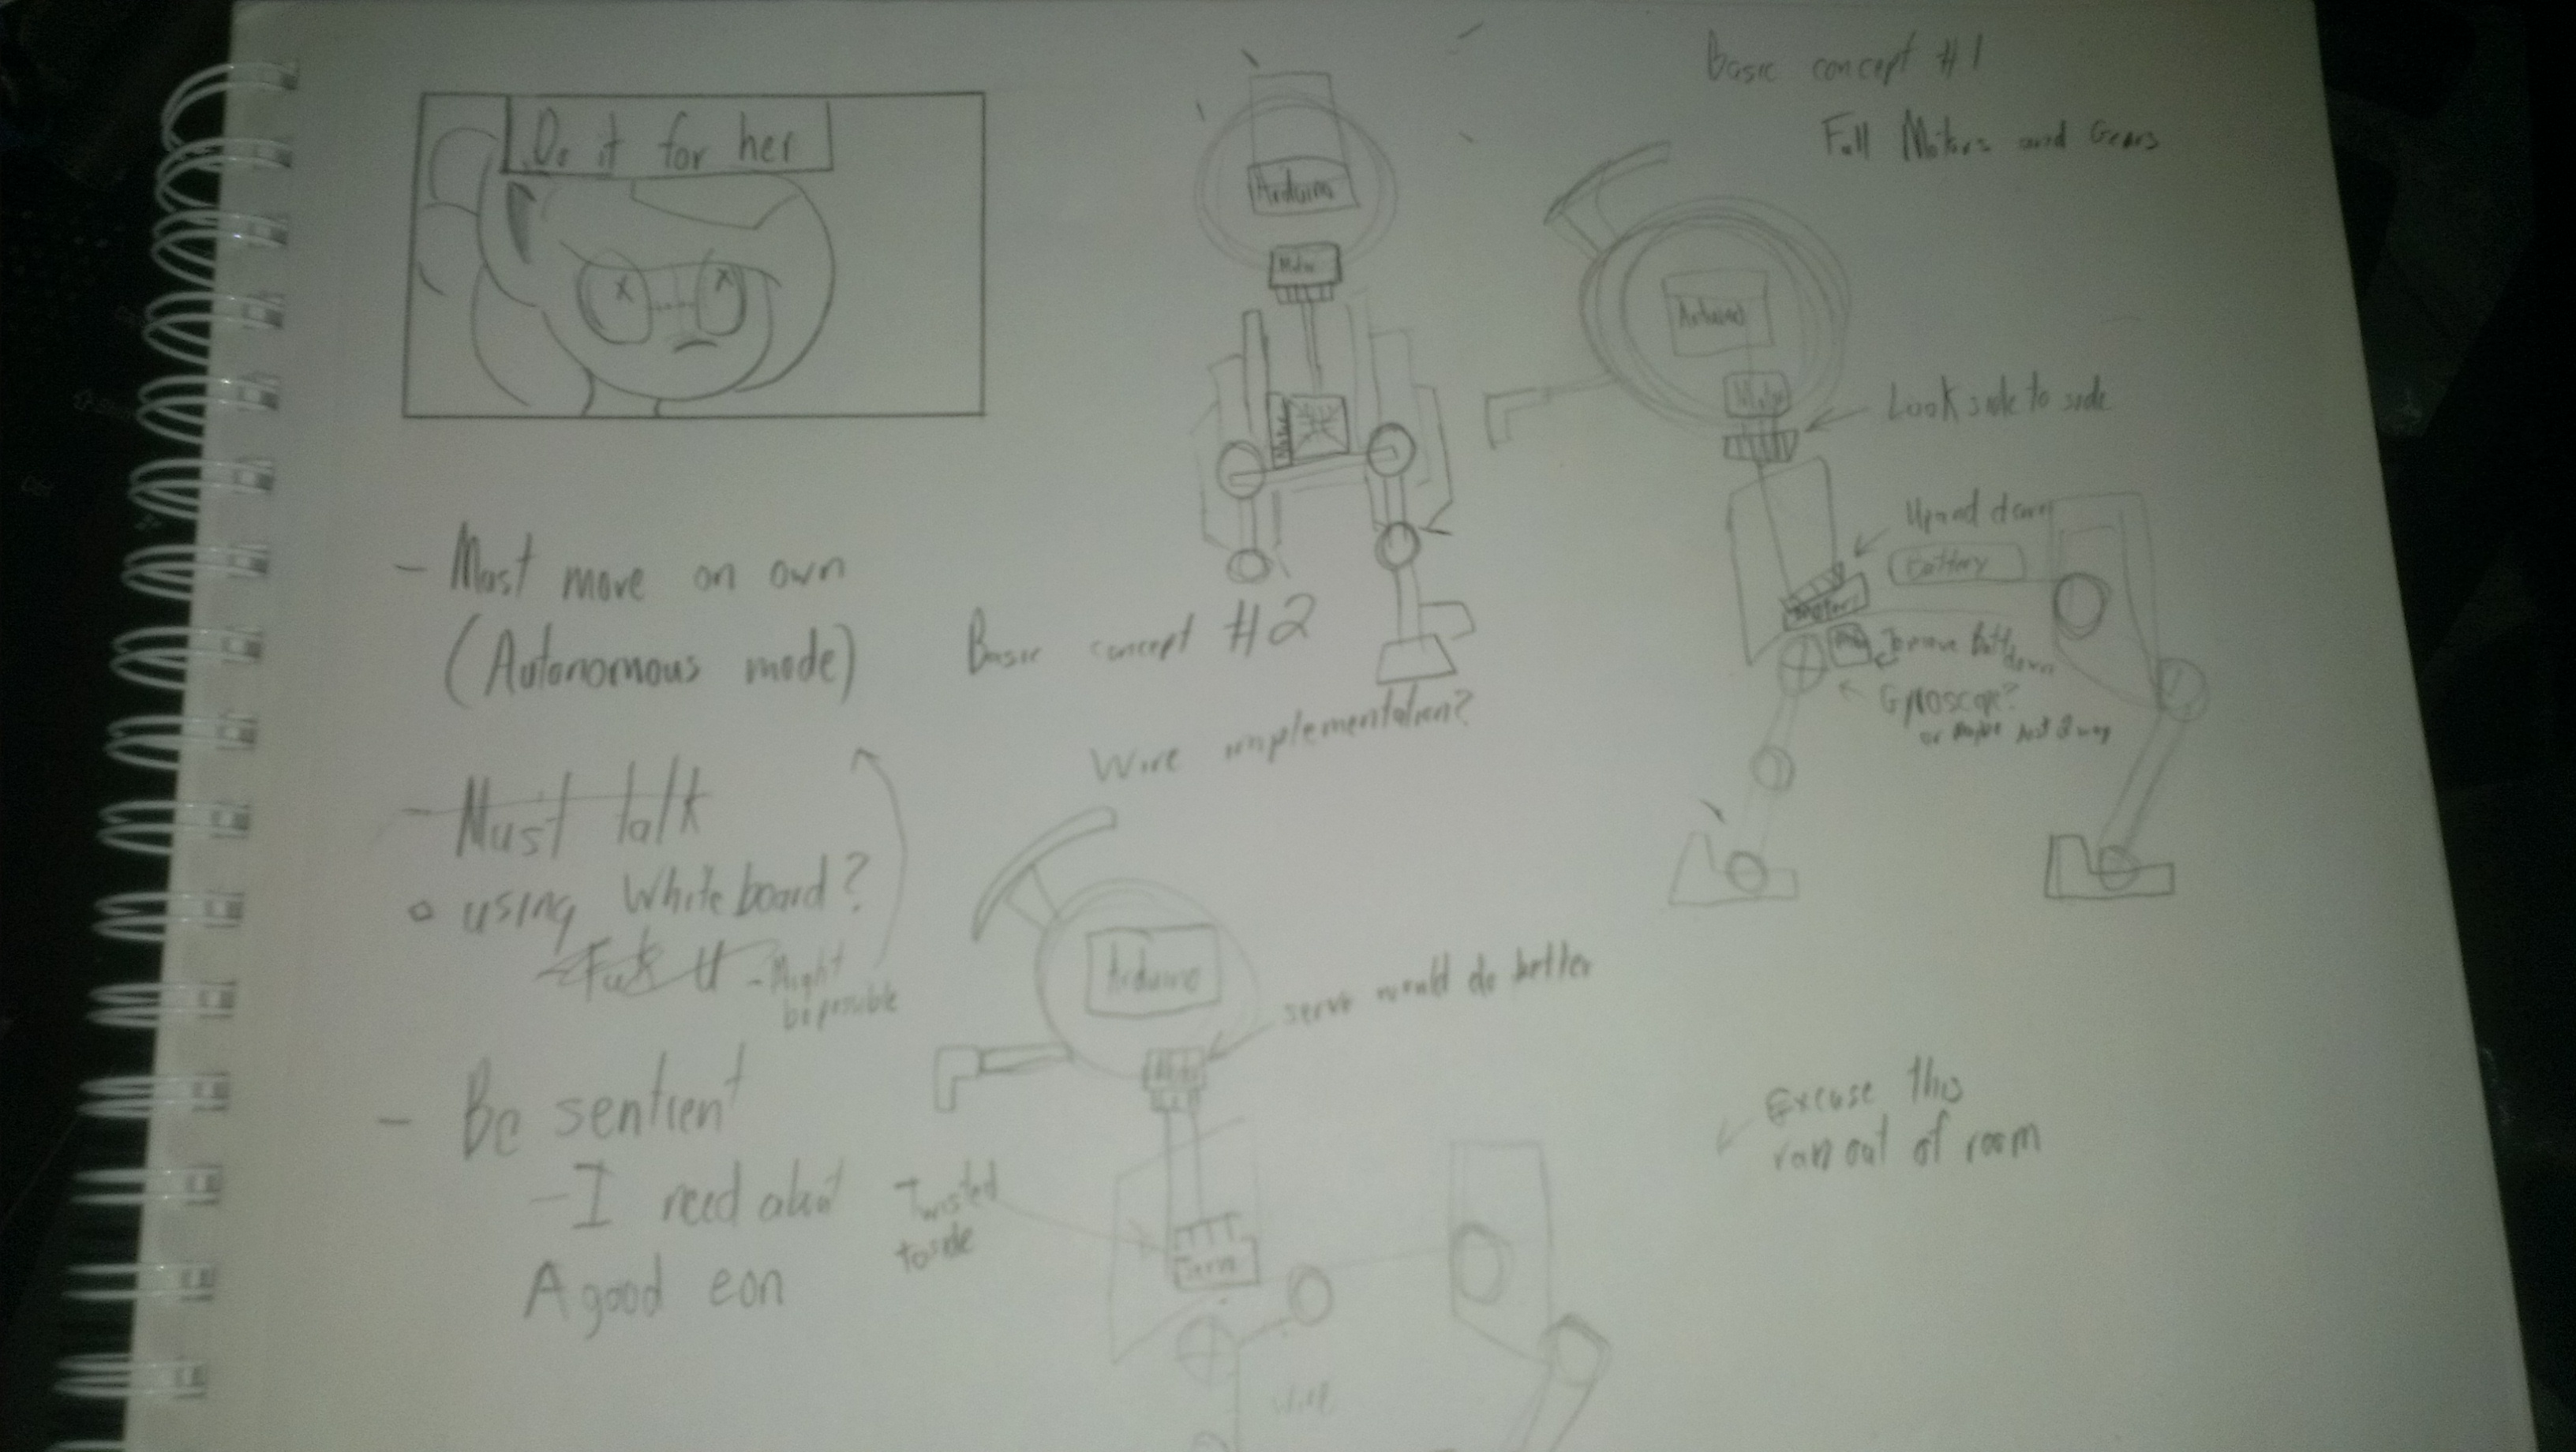 Do it for her
- Must move on own
(Autonomous mode)
- Must talk
○ using White board?
- Might
be possible
- Be sentient
- I need about
A good eon
Arduino
Motor
Motor
Basic concept #2
Wire implementation?
Basic concept #1
Full Motors and Gears
Arduino
Motor
Look side to side
Up and down
Battery
Motor
To move Butt
down
Gyroscope?
or maybe just a
Arduino
servo would do better
Moto
Twisted
to side
Servo
Excuse this
ran out of room